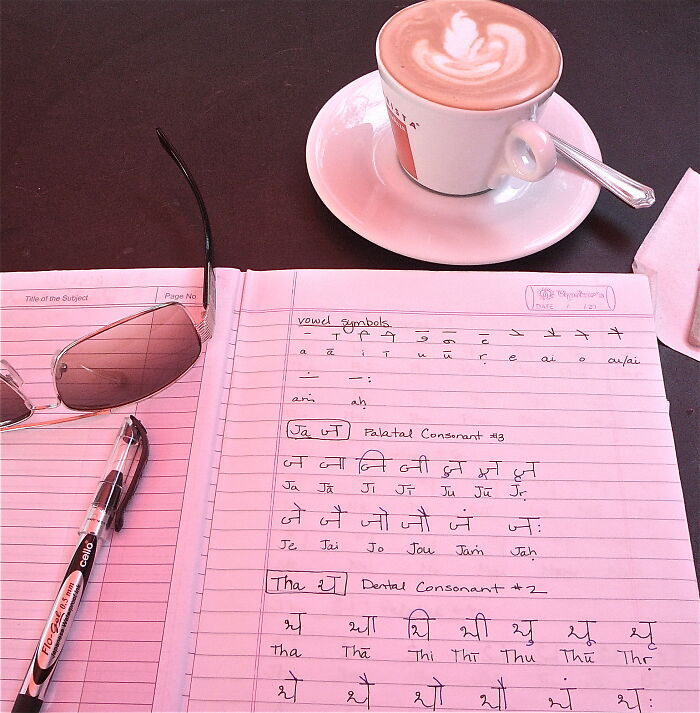 Title of the Subject
Page No
DATE
vowel symbols
a ā i ī u ū ṛ e ai o au/ai
aṁ aḥ
Ja ज Palatal Consonant #3
ज जा जि जी जु जू जृ
Ja Jā Jī Jī Ju Jū Jṛ
जे जै जो जौ जं जः
Je Jai Jo Jou Jaṁ Jaḥ
Tha थ Dental Consonant #2
थ था थि थी थु थू थृ
Tha Thā Thi Thī Thu Thū Thṛ
थे थै थो थौ थं थः
cello
Flo-Gel 0.5 mm